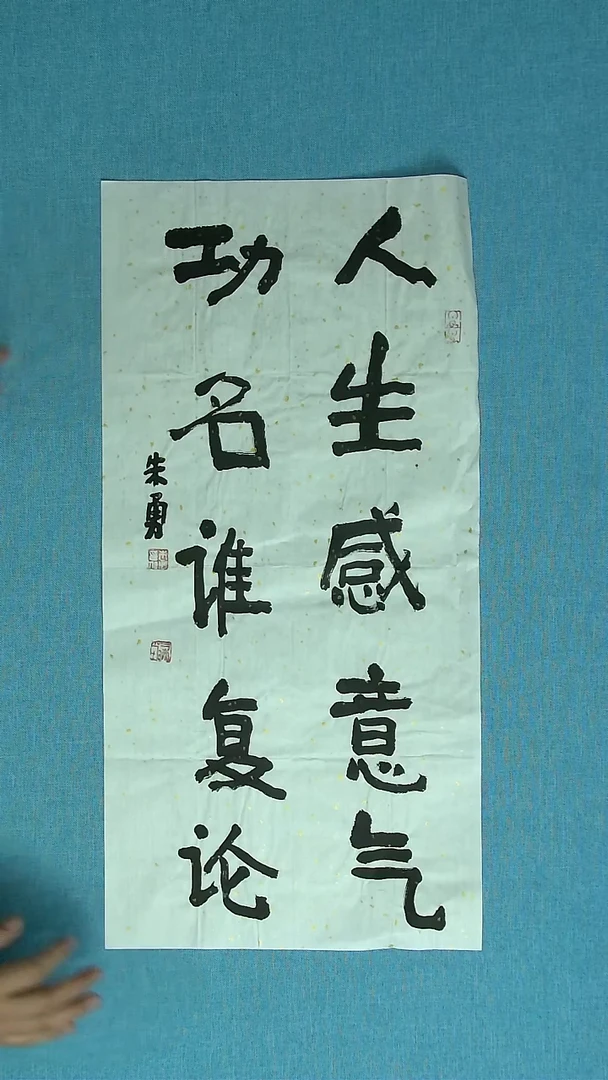 人生感意气
功名谁复论
朱勇